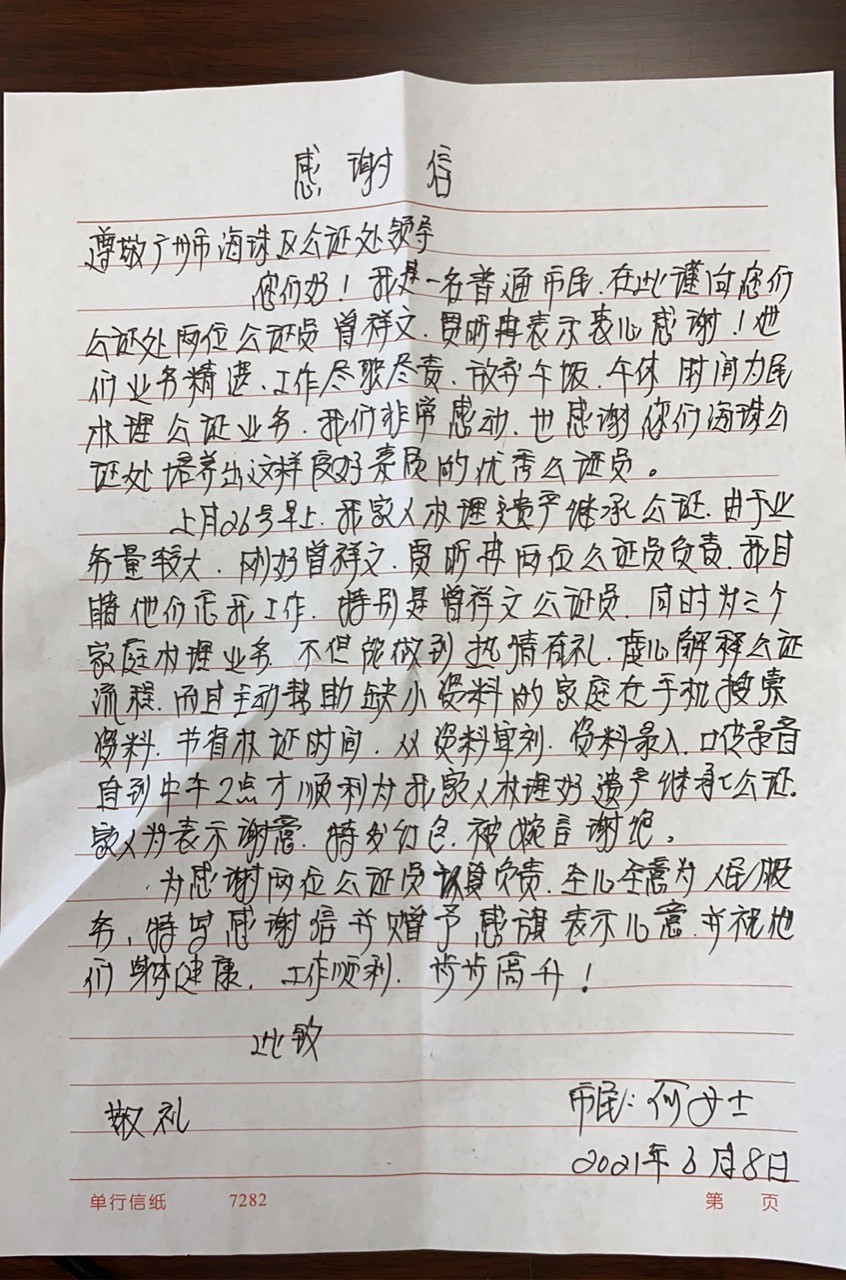 感谢信
尊敬广州市海珠区公证处领导
您们好！我是一名普通市民，在此谨向您们
公证处两位公证员曾祥文、贾昕冉表示衷心感谢！他
们业务精进、工作尽职尽责、放弃午饭、午休时间为民
办理公证业务，我们非常感动，也感谢您们海珠公
证处培养出这样良好素质的优秀公证员。
上月26号早上，我家人办理遗产继承公证，由于业
务量较大，刚好曾祥文、贾昕冉两位公证员负责，我目
睹他们忘我工作，特别是曾祥文公证员，同时为三个
家庭办理业务，不但能做到热情有礼，虚心解释公证
流程，而且主动帮助缺小资料的家庭在手机搜索
资料，节省办证时间，从资料审列、资料录入、口供录音
自到中午2点才顺利为我家人办理好遗产继承公证。
家人为表示谢意，特发红包，被婉言谢绝。
为感谢两位公证员认真负责、全心全意为人民服
务，特写感谢信并赠予感旗表示心意，并祝他
们身体健康，工作顺利，步步高升！
此致
敬礼
市民：何女士
2021年3月8日
单行信纸 7282 第 页